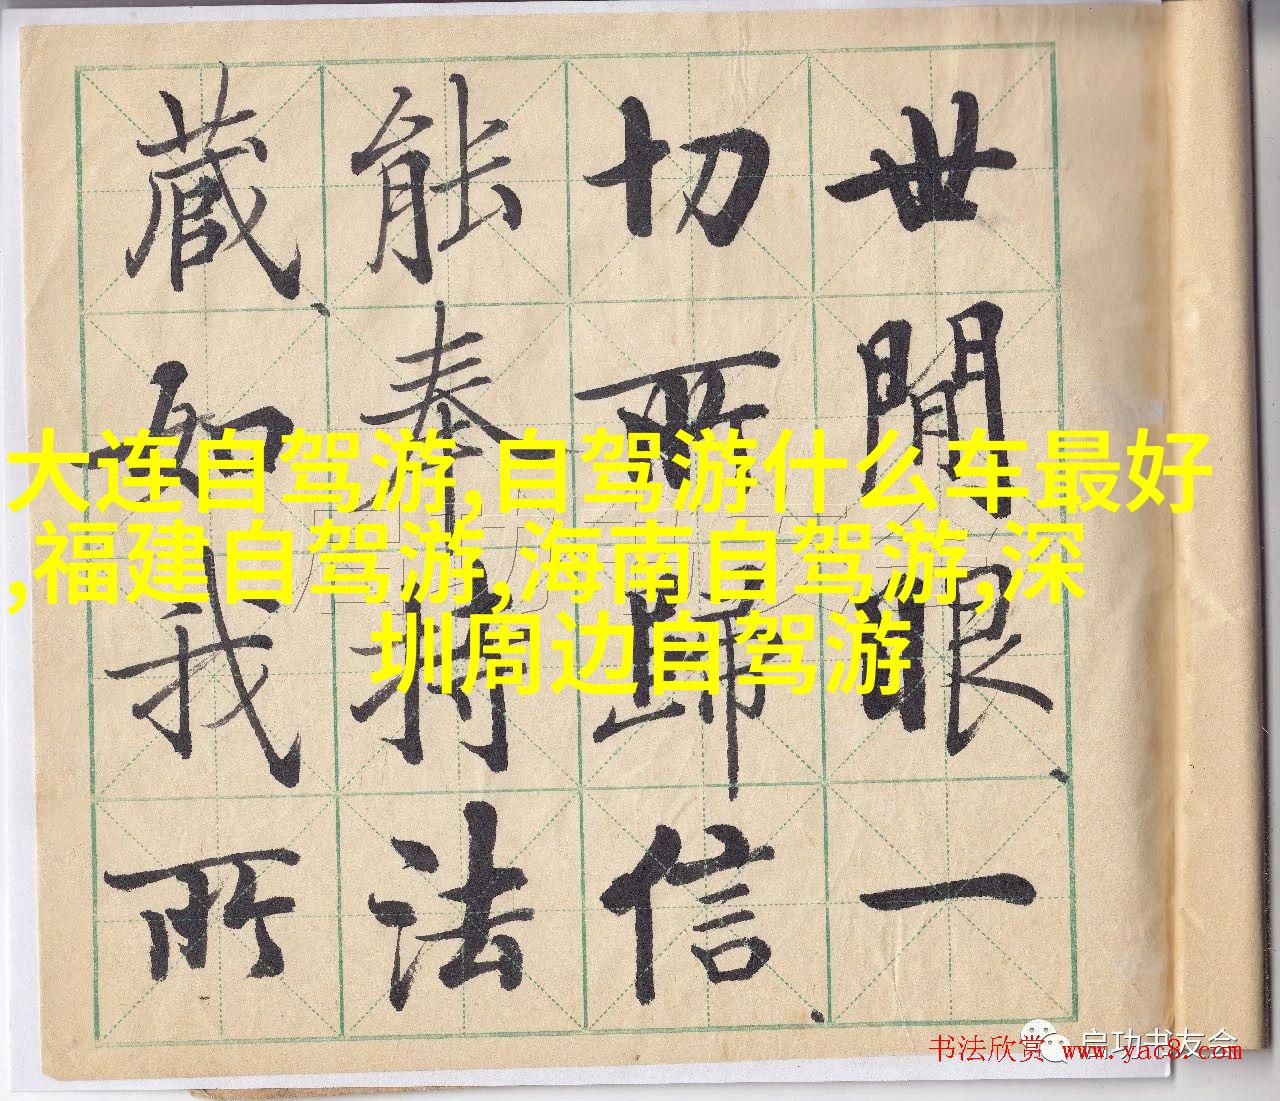 世間眼一
切所歸信
能奉持法
藏如我所
大连自驾游,自驾游什么车最好
,福建自驾游,海南自驾游,深
圳周边自驾游
启功书友会
书法欣赏 www.yac8.com